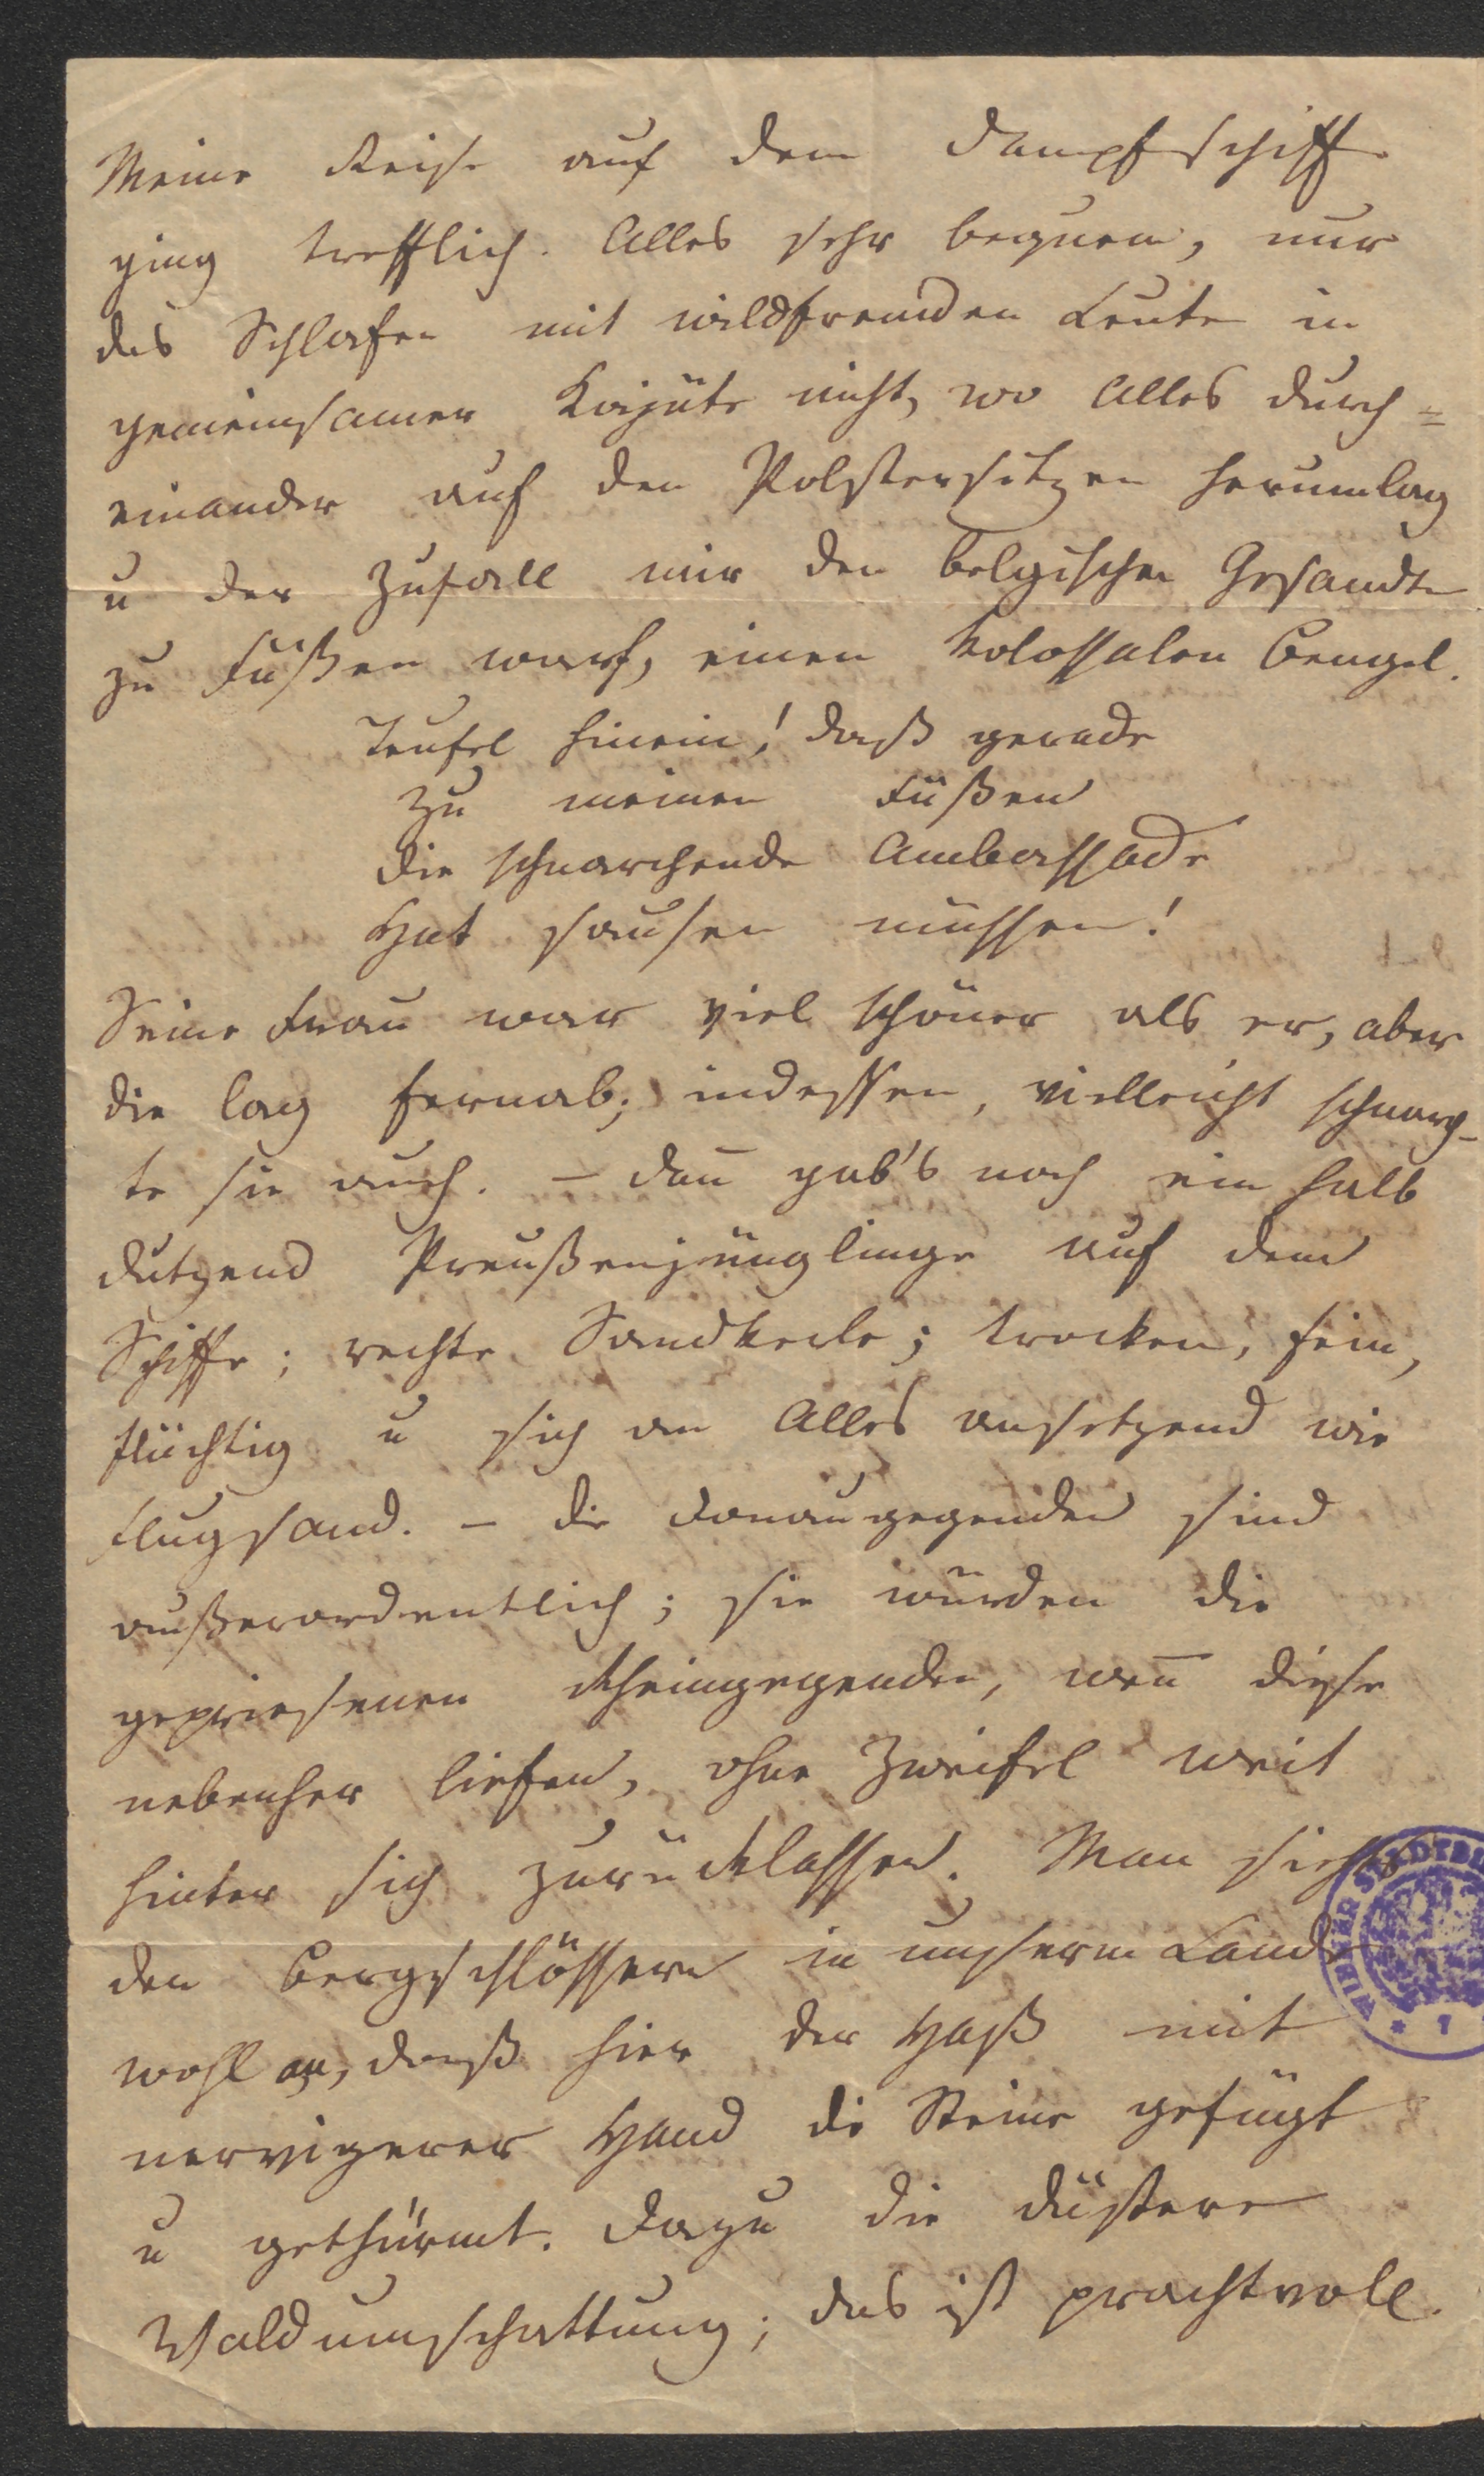 Meine Reise auf dem Dampfschiffe
ging trefflich. Alles sehr bequem, nur
das Schlafen mit wildfremden Leuten in
gemeinsamer Kajüte nicht, wo Alles durch=
einander auf den Polstersitzen herumlag
u der Zufall mir den belgischen Gesandten
zu Füßen warf, einen kolossalen Bengel.
Teufel hinein! daß gerade
Zu meinen Füßen
Die schnarchende Ambassade
Hat sausen müssen!
Seine Frau war viel schöner als er, aber
die lag fernab; indessen, vielleicht schnarch-
te sie auch. – Dañ gab's noch ein halb
Dutzend Preußenjünglinge auf dem
Schiffe; rechte Sandkerle; trocken, fein,
flüchtig u sich an Alles ansetzend wie
Flugsand. – Die Donaugegenden sind
außerordentlich; sie würden die
gepriesenen Rheingegenden, weñ diese
nebenher liefen, ohne Zweifel weit
hinter sich zurücklassen. Man sieht's
den Bergschlössern in unserm Lande
wohl an, daß hier der Haß mit
nervigerer Hand die Steine gefügt
u gethürmt. Dazu die düstere
Waldumschattung; das ist prachtvoll.
WIENER STADTBI